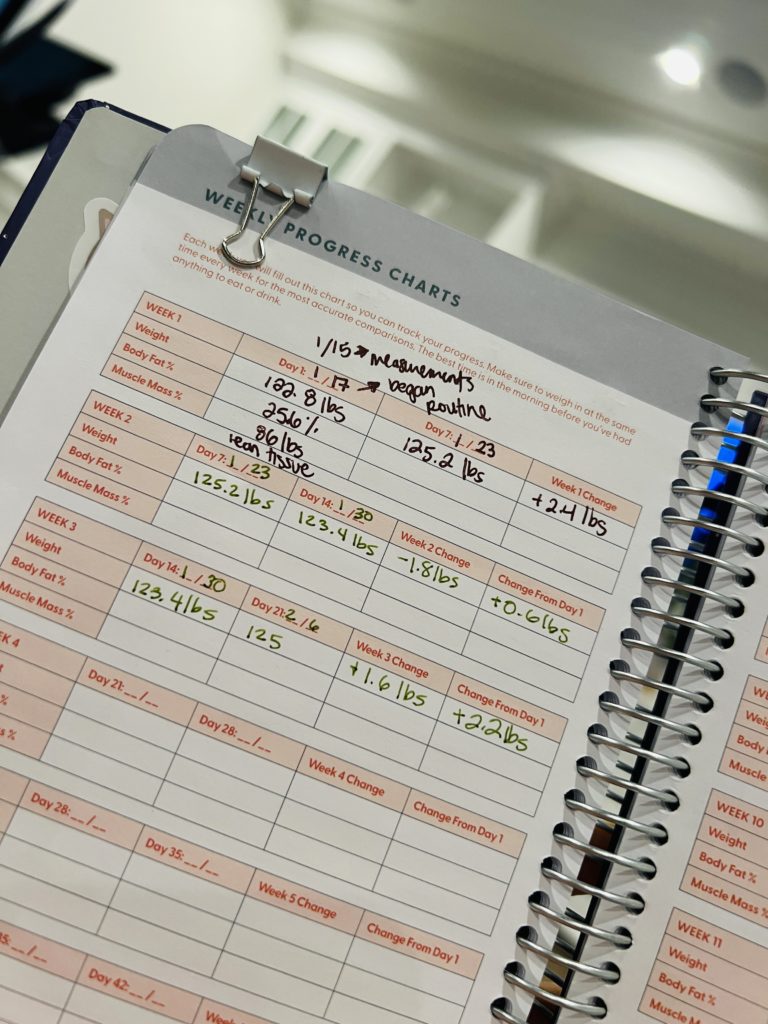 WEEKLY PROGRESS CHARTS
Each will fill out this chart so you can track your progress. Make sure to weigh in at the same
time every week for the most accurate comparisons. The best time is in the morning before you've had
anything to eat or drink.
1/15 → measurements
WEEK 1
Day 1: 1/17 → began
Routine
Day 7: 1/23
Week 1 Change
Weight
122.8 lbs
125.2 lbs
+2.4 lbs
Body Fat %
25.6%
Muscle Mass %
86 lbs
lean tissue
WEEK 2
Day 7: 1/23
Day 14: 1/30
Week 2 Change
Change From Day 1
Weight
125.2 lbs
123.4 lbs
-1.8 lbs
+0.6 lbs
Body Fat %
Muscle Mass %
WEEK 3
Day 14: 1/30
Day 21: 2/6
Week 3 Change
Change From Day 1
Weight
123.4 lbs
125
+1.6 lbs
+2.2 lbs
Body Fat %
Muscle Mass %
K 4
Day 21: __/__
Day 28: __/__
Week 4 Change
Change From Day 1
t
%
s %
Day 28: __/__
Day 35: __/__
Week 5 Change
Change From Day 1
35: __/__
Day 42: __/__
Week
WE
Weig
Body
Muscle
WEEK 10
Weight
Body Fat %
Muscle Mass %
WEEK 11
Weight
Body Fat %
Muscle Mass